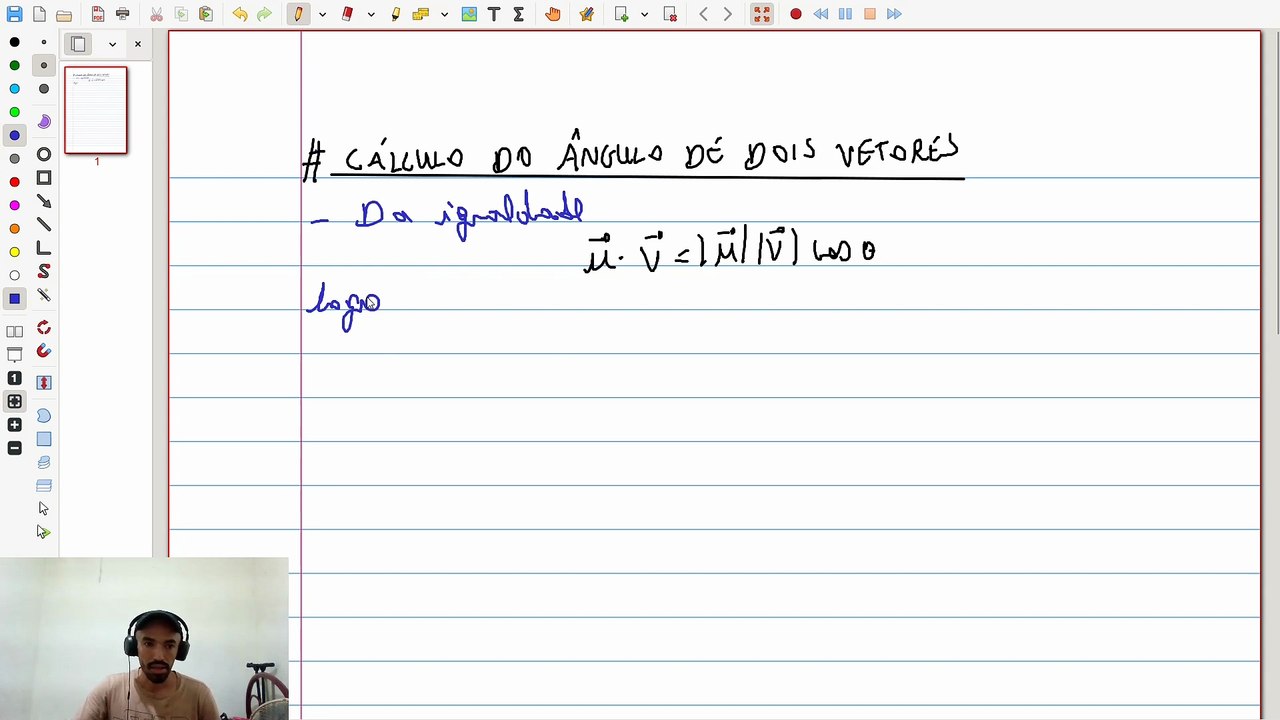 # CÁLCULO DO ÂNGULO DE DOIS VETORES
- Da igualdade
u⃗ · v⃗ = |u⃗| |v⃗| cos θ
logo
1